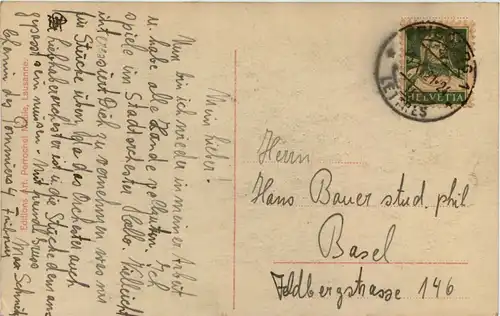 Mein Lieber!
Nun bin ich wieder in meiner Arbeit
u. habe alle Hände voll zu tun. Ich
spiele im Stadtorchester Cello. Vielleicht
interessiert Dich zu vernehmen was wir
für Stücke üben. Da das Orchester auch
Liebhaberorchester ist u. die Stücke dem
gepasst sein müssen. Mit freundl. Gruss
Max
Chemin des Pommiers 4
Editions Art. Perrochet Matile, Lausanne.
LETTRES
HELVETIA
Herrn
Hans Bauer stud. phil.
Basel
Feldbergstrasse 146